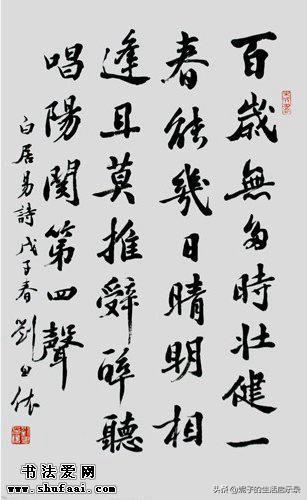 百歲無多時壯健一
春能幾日晴明相
逢且莫推辭醉聽
唱陽關第四聲
白居易詩戊子春劉
书法爱网
www.shufaai.com
头条@妮子的生活启示录